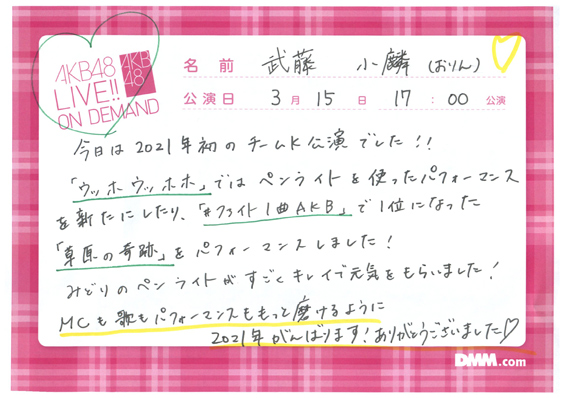 AKB48
LIVE!!
ON DEMAND
AKB
48
名前 武藤 小麟(おりん)
公演日 3月15日 17:00 公演
今日は2021年初のチームK公演でした!!
「ウッホウッホホ」ではペンライトを使ったパフォーマンス
を新たにしたり、「#ファイト1曲AKB」で1位になった
「草原の奇跡」をパフォーマンスしました!
みどりのペンライトがすごくキレイで元気をもらいました!
MCも歌もパフォーマンスももっと磨けるように
2021年がんばります!ありがとうございました♡
DMM.com